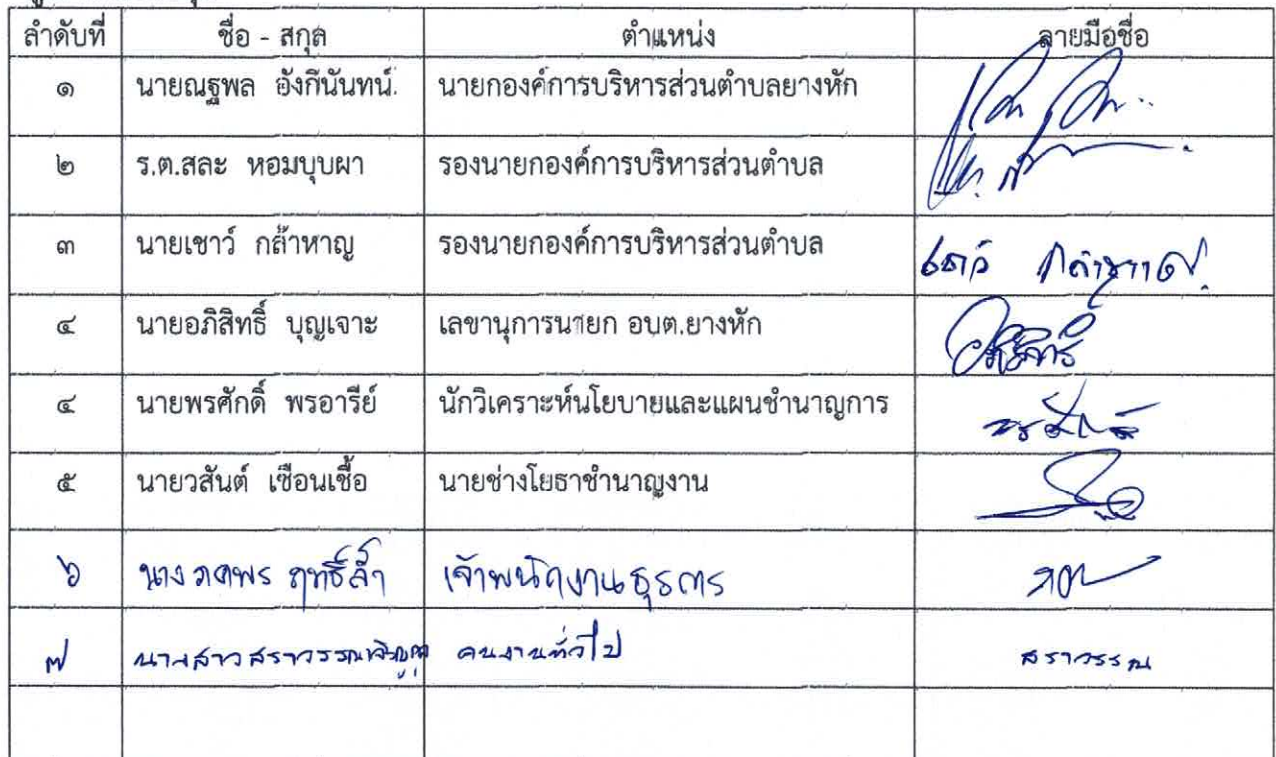 ลำดับที่ ชื่อ - สกุล ตำแหน่ง ลายมือชื่อ
๑ นายณฐพล อังกีนันทน์ นายกองค์การบริหารส่วนตำบลยางหัก
๒ ร.ต.สละ หอมบุบผา รองนายกองค์การบริหารส่วนตำบล
๓ นายเชาว์ กล้าหาญ รองนายกองค์การบริหารส่วนตำบล เชาว์ กล้าหาญ
๔ นายอภิสิทธิ์ บุญเจาะ เลขานุการนายก อบต.ยางหัก อภิสิทธิ์
๔ นายพรศักดิ์ พรอารีย์ นักวิเคราะห์นโยบายและแผนชำนาญการ พรศักดิ์
๕ นายวสันต์ เชือนเชื้อ นายช่างโยธาชำนาญงาน
๖ นาง ภคพร ฤทธิ์ล้ำ เจ้าพนักงานธุรการ
๗ นางสาวสราวรรณ คนงานทั่วไป สราวรรณ